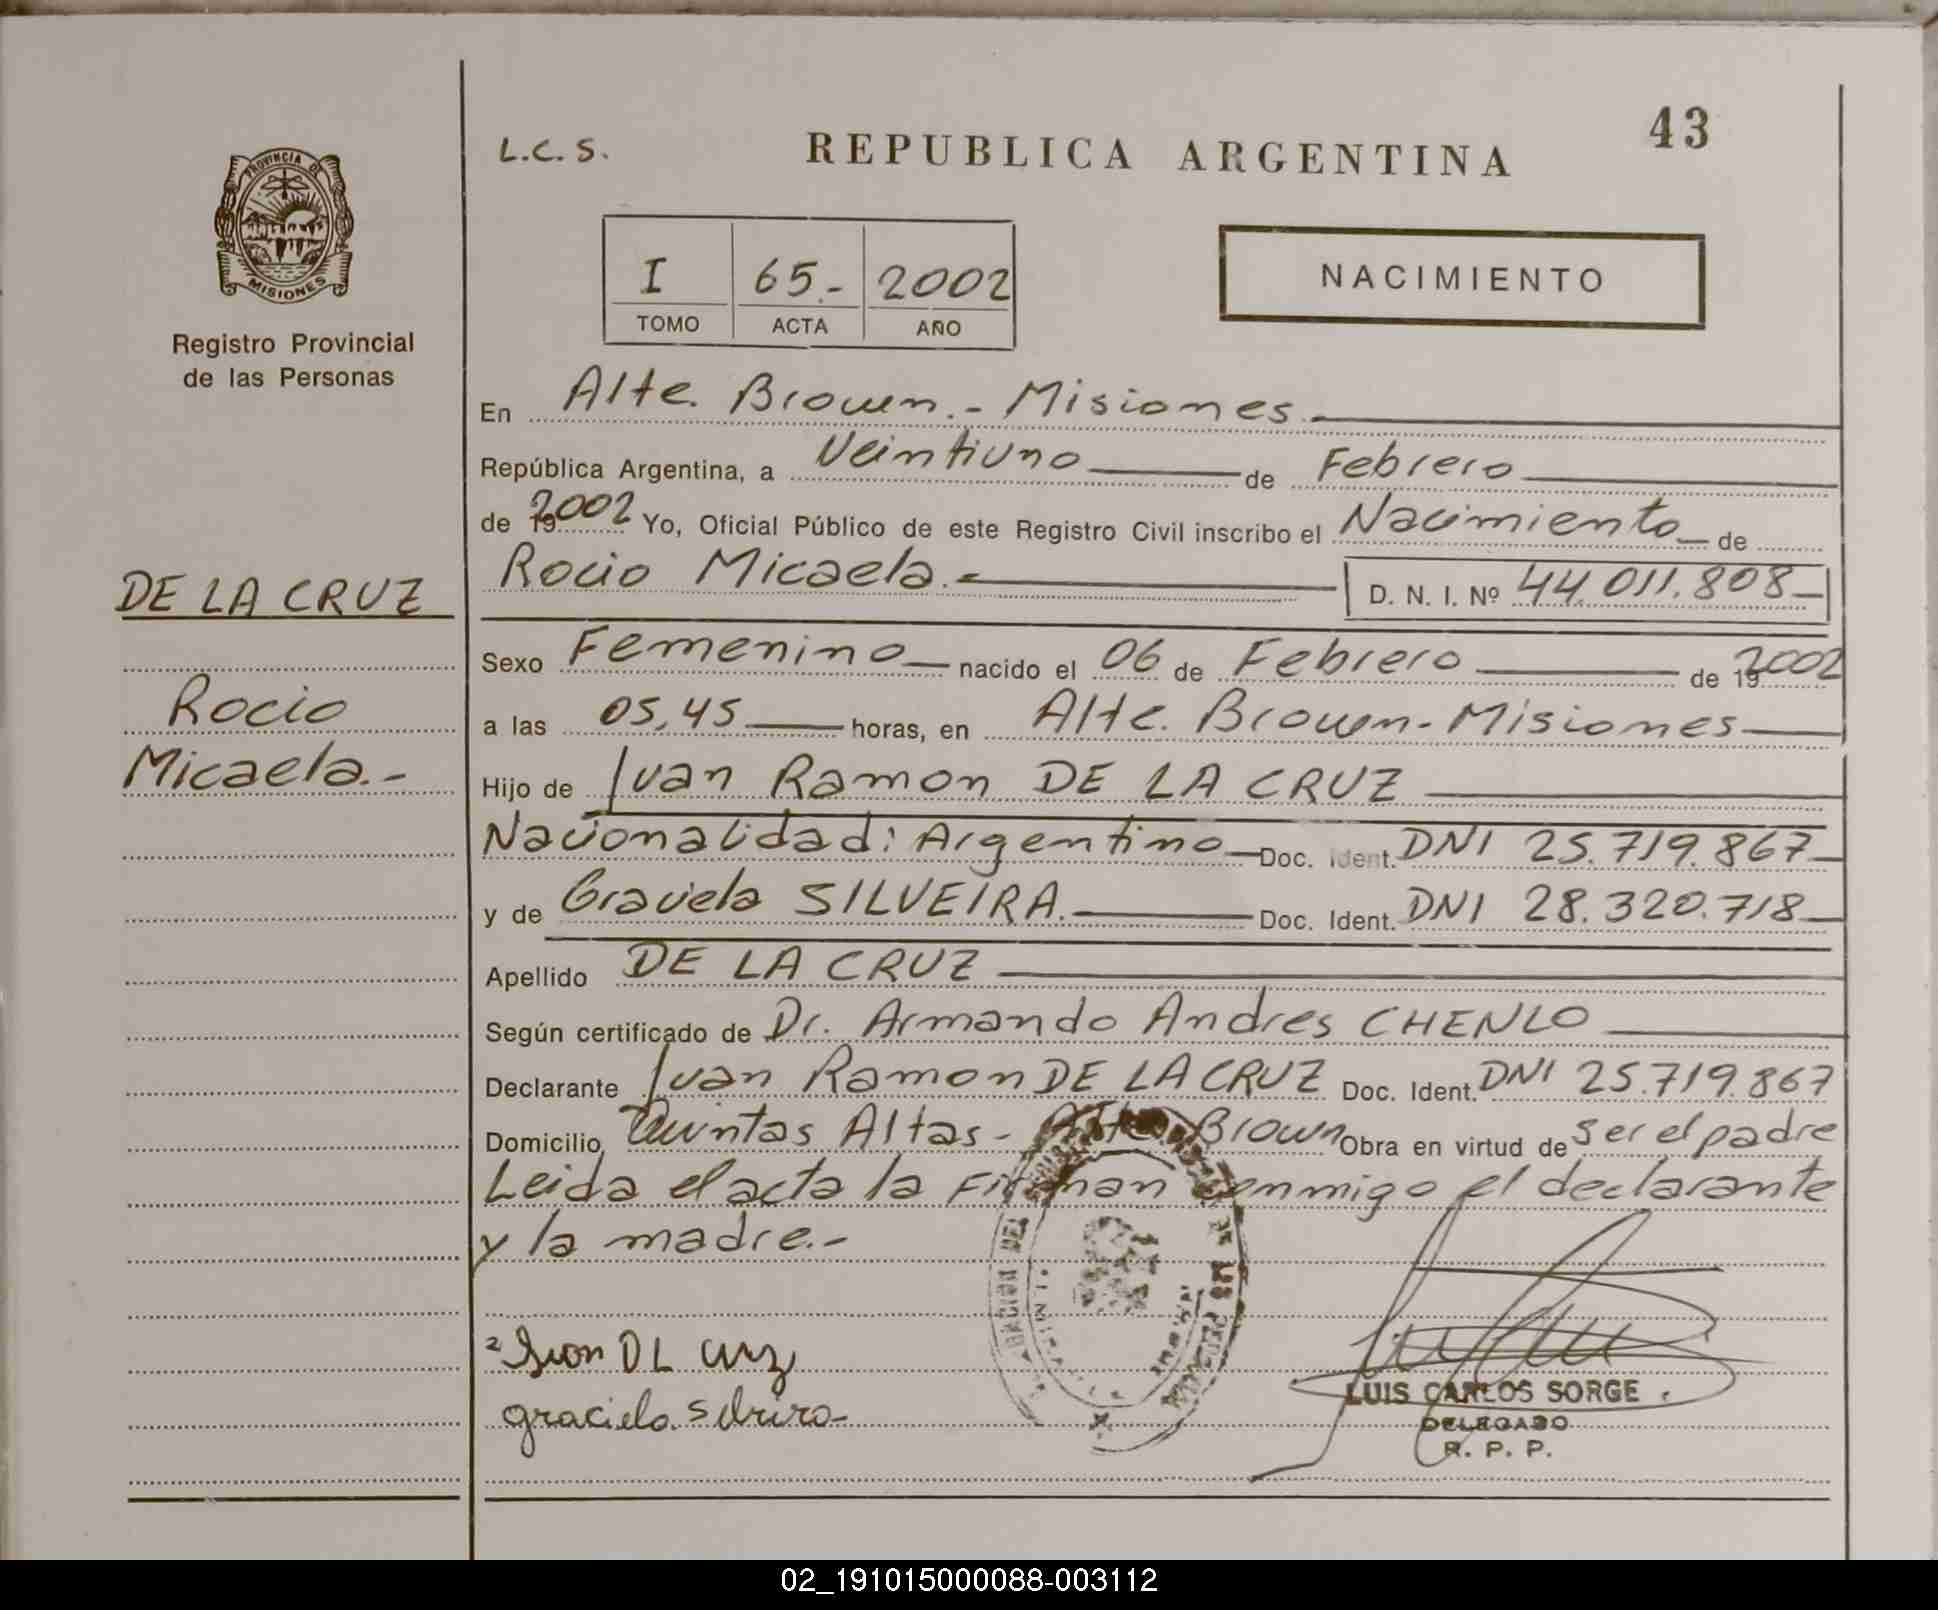 43
L.C.S. REPUBLICA ARGENTINA
PROVINCIA DE
MISIONES
Registro Provincial
de las Personas
I 65.- 2002
TOMO ACTA AÑO
NACIMIENTO
DE LA CRUZ
Rocio
Micaela.-
En Alte. Brown.- Misiones
República Argentina, a Veintiuno de Febrero
de 19 2002 Yo, Oficial Público de este Registro Civil inscribo el Nacimiento de
Rocio Micaela.- D. N. I. Nº 44.011.808
Sexo Femenino nacido el 06 de Febrero de 19 2002
a las 05,45 horas, en Alte. Brown - Misiones
Hijo de Juan Ramon DE LA CRUZ
Nacionalidad: Argentino Doc. Ident. DNI 25.719.867
y de Graciela SILVEIRA. Doc. Ident. DNI 28.320.718
Apellido DE LA CRUZ
Según certificado de Dr. Armando Andres CHENLO
Declarante Juan Ramon DE LA CRUZ Doc. Ident. DNI 25.719.867
Domicilio Quintas Altas - Alte. Brown Obra en virtud de ser el padre
Leida el acta la Firman conmigo el declarante
y la madre.-
DL
graciela
LUIS CARLOS SORGE
DELEGADO
R. P. P.
02_191015000088-003112